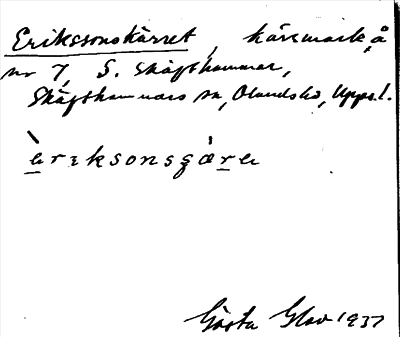 Erikssonskärret, kärrmark, å
nr 7, S. Skäfthammar,
Skäfthammars sn, Olands hd, Upps. l.
èrɪksonsçǽrə
Gösta Glav 1937